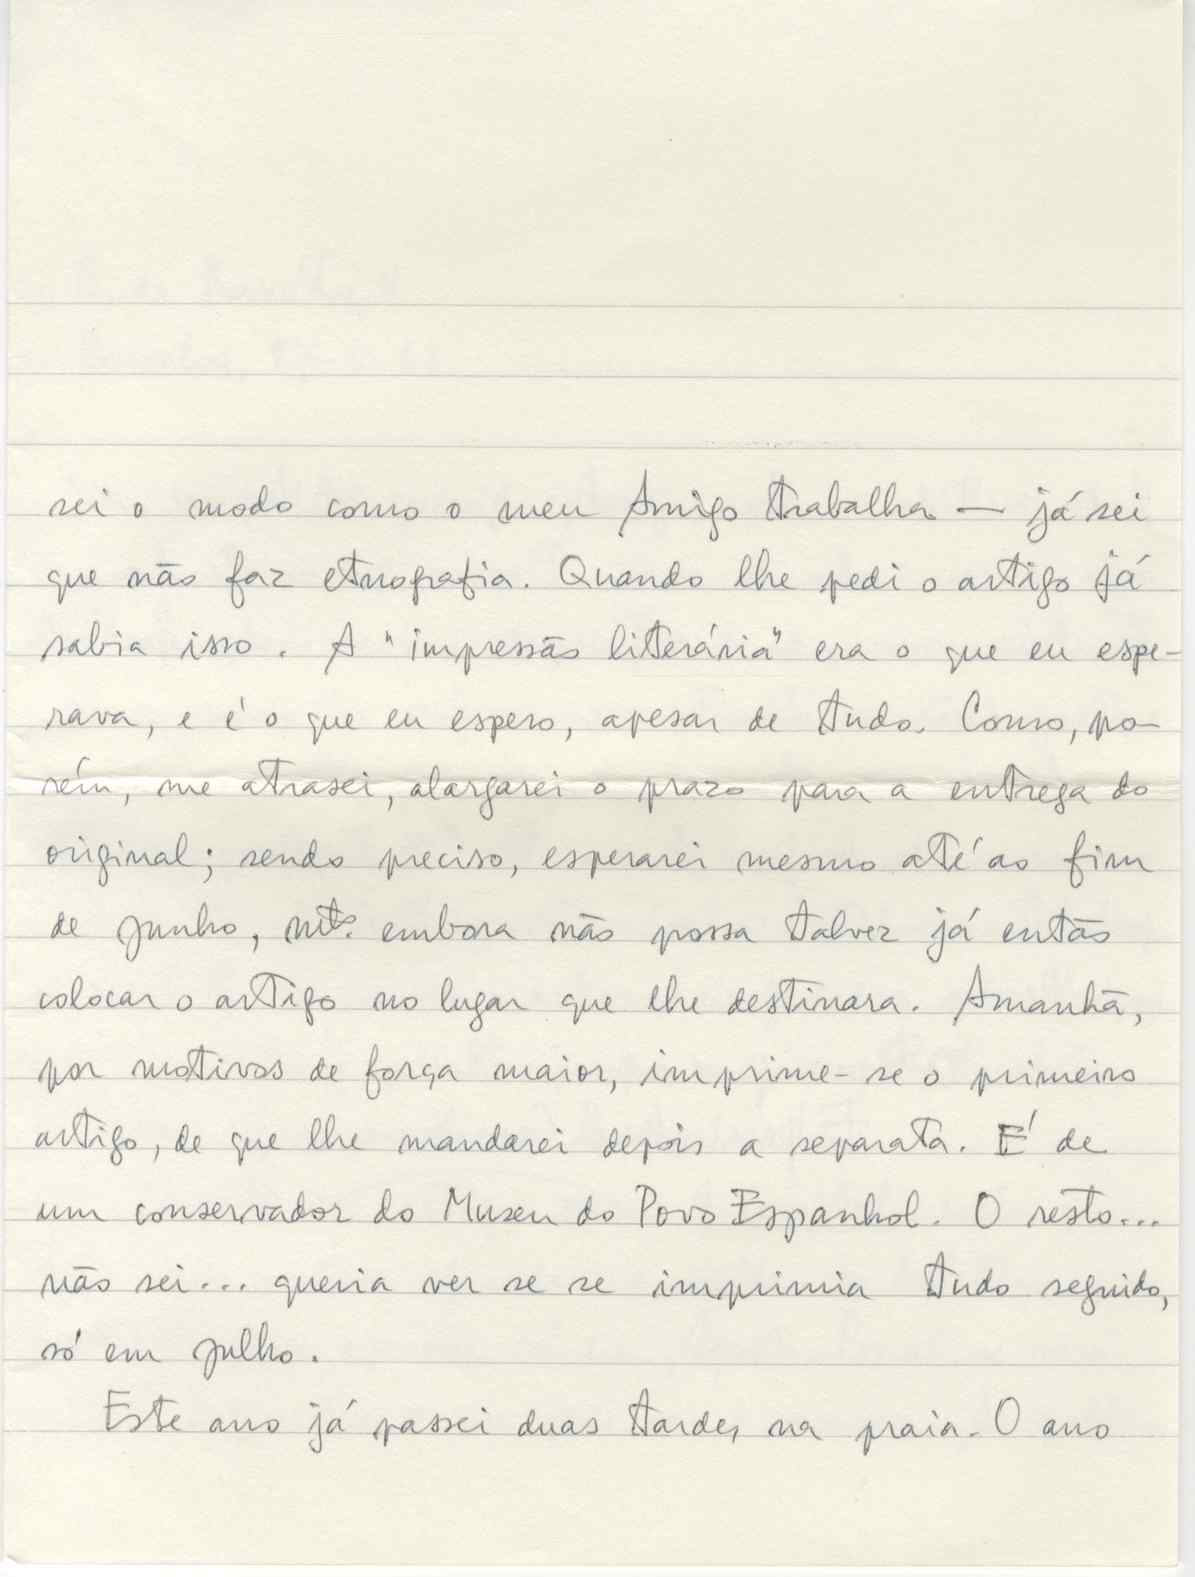 sei o modo como o meu Amigo trabalha — já sei
que não faz etnografia. Quando lhe pedi o artigo já
sabia isso. A "impressão literária" era o que eu espe-
rava, e é o que eu espero, apesar de tudo. Como, po-
rém, me atrasei, alargarei o prazo para a entrega do
original; sendo preciso, esperarei mesmo até ao fim
de junho, mto. embora não possa talvez já então
colocar o artigo no lugar que lhe destinara. Amanhã,
por motivos de força maior, imprime-se o primeiro
artigo, de que lhe mandarei depois a separata. É de
um conservador do Museu do Povo Espanhol. O resto...
não sei... queria ver se se imprimia tudo seguido,
só em julho.
Este ano já passei duas tardes na praia. O ano